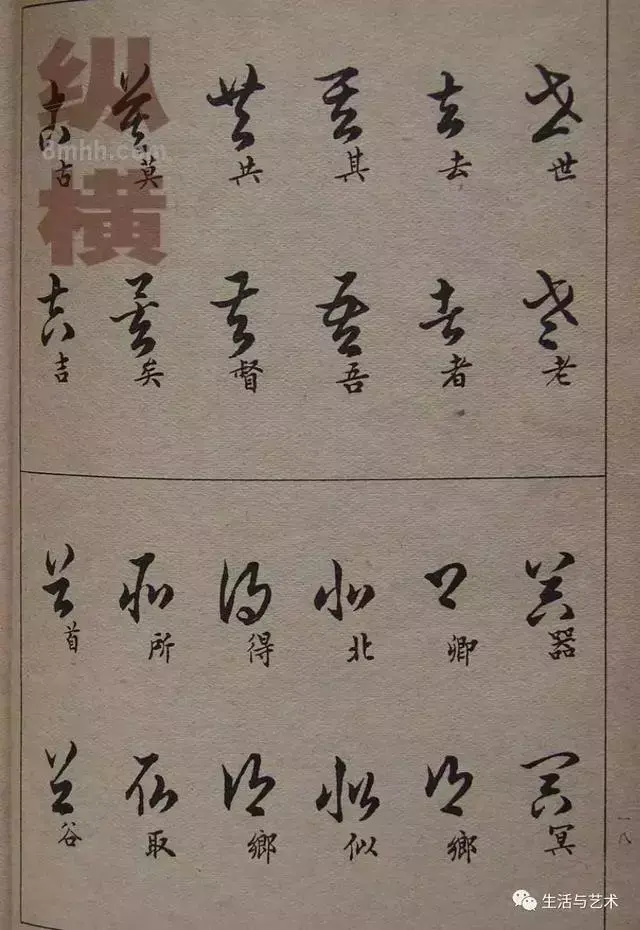 世 去 其 共 莫 古
老 者 吾 督 矣 吉
器 卿 北 得 所 首
冥 鄉 似 鄉 取 谷
一八
纵横
8mhh.com
生活与艺术